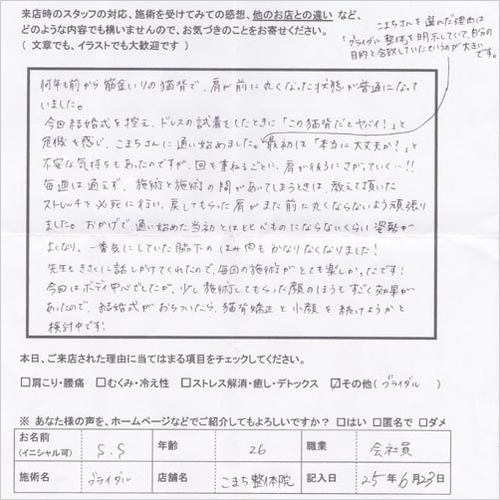 来店時のスタッフの対応、施術を受けてみての感想、他のお店との違い など、
どのような内容でも構いませんので、お気づきのことをお寄せください。
（ 文章でも、イラストでも大歓迎です ）
こまちさんを選んだ理由は
"ブライダル整体"を明示していて、自分の
目的と合致していたというのが大きい
です。
何年も前から筋金いりの猫背で、肩が前に丸くなった状態が普通になって
いました。
今回結婚式を控え、ドレスの試着をしたときに「この猫背だとヤバイ!」と
危機を感じ、こまちさんに通い始めました。最初は「本当に大丈夫か?」と
不安な気持ちもあったのですが、回を重ねるごとに、肩が後ろにさがっていく…!!
毎週は通えず、施術と施術の間があいてしまうときは、教えて頂いた
ストレッチを必死に行い、戻してもらった肩がまた前に丸くならないよう頑張り
ました。おかげで通い始めた当初とは比べものにならないくらい姿勢が
よくなり、一番気にしていた脇下のはみ肉もかなりなくなりました!
先生も気さくに話しかけてくれたので、毎回の施術がとても楽しかったです!
今回はボディ中心でしたが、少し施術してもらった顔のほうもすごく効果が
あったので、結婚式がおちついたら、猫背矯正と小顔を続けようかと
検討中です!
本日、ご来店された理由に当てはまる項目をチェックしてください。
□肩こり・腰痛 □むくみ・冷え性 □ストレス解消・癒し・デトックス ☑その他( ブライダル )
※ あなた様の声を、ホームページなどでご紹介してもよろしいですか？ □はい □匿名で □ダメ
お名前（イニシャル可） S.S 年齢 26 職業 会社員
施術名 ブライダル 店舗名 こまち整体院 記入日 25年6月23日